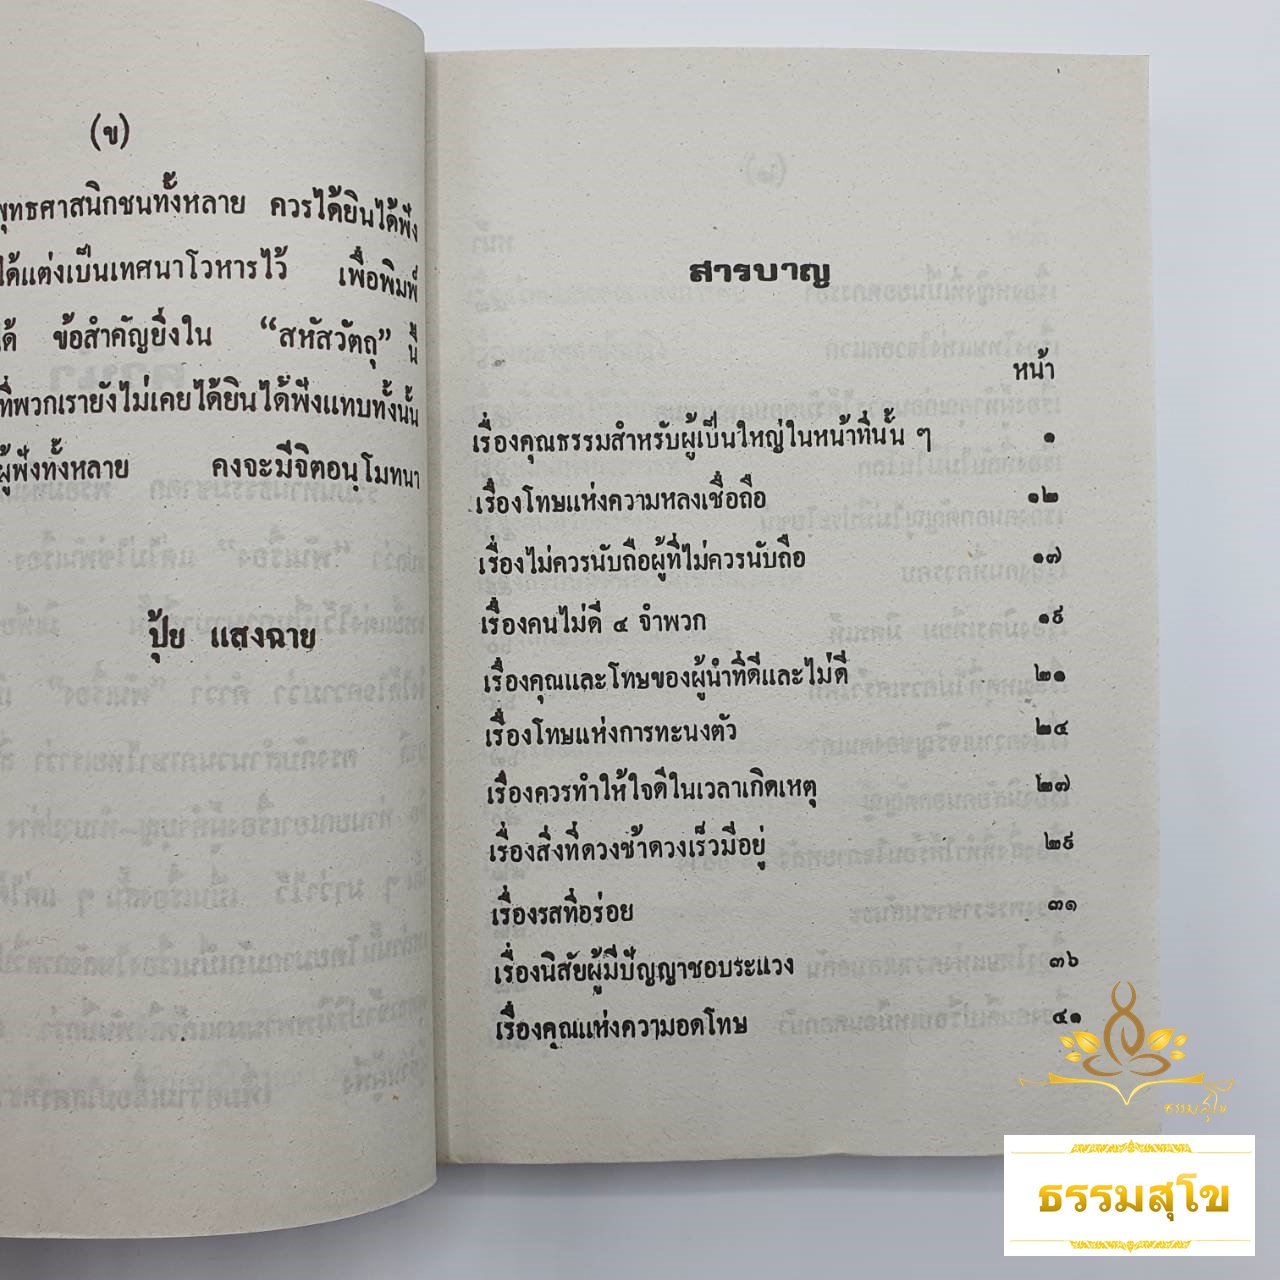 (ข)
พุทธศาสนิกชนทั้งหลาย ควรได้ยินได้ฟัง
ได้แต่งเป็นเทศนาโวหารไว้ เพื่อพิมพ์
ได้ ข้อสำคัญยิ่งใน “สหัสวัตถุ” นี้
ที่พวกเรายังไม่เคยได้ยินได้ฟังแทบทั้งนั้น
ผู้ฟังทั้งหลาย คงจะมีจิตอนุโมทนา
ปุ้ย แสงฉาย
สารบาญ
หน้า
เรื่องคุณธรรมสำหรับผู้เป็นใหญ่ในหน้าที่นั้น ๆ ๑
เรื่องโทษแห่งความหลงเชื่อถือ ๑๒
เรื่องไม่ควรนับถือผู้ที่ไม่ควรนับถือ ๑๗
เรื่องคนไม่ดี ๔ จำพวก ๑๙
เรื่องคุณและโทษของผู้นำที่ดีและไม่ดี ๒๑
เรื่องโทษแห่งการทะนงตัว ๒๔
เรื่องควรทำให้ใจดีในเวลาเกิดเหตุ ๒๗
เรื่องสิ่งที่ดวงช้าดวงเร็วมีอยู่ ๒๙
เรื่องรสที่อร่อย ๓๑
เรื่องนิสัยผู้มีปัญญาชอบระแวง ๓๖
เรื่องคุณแห่งความอดโทษ ๔๑
ธรรมสุโข
ธรรมสุโข